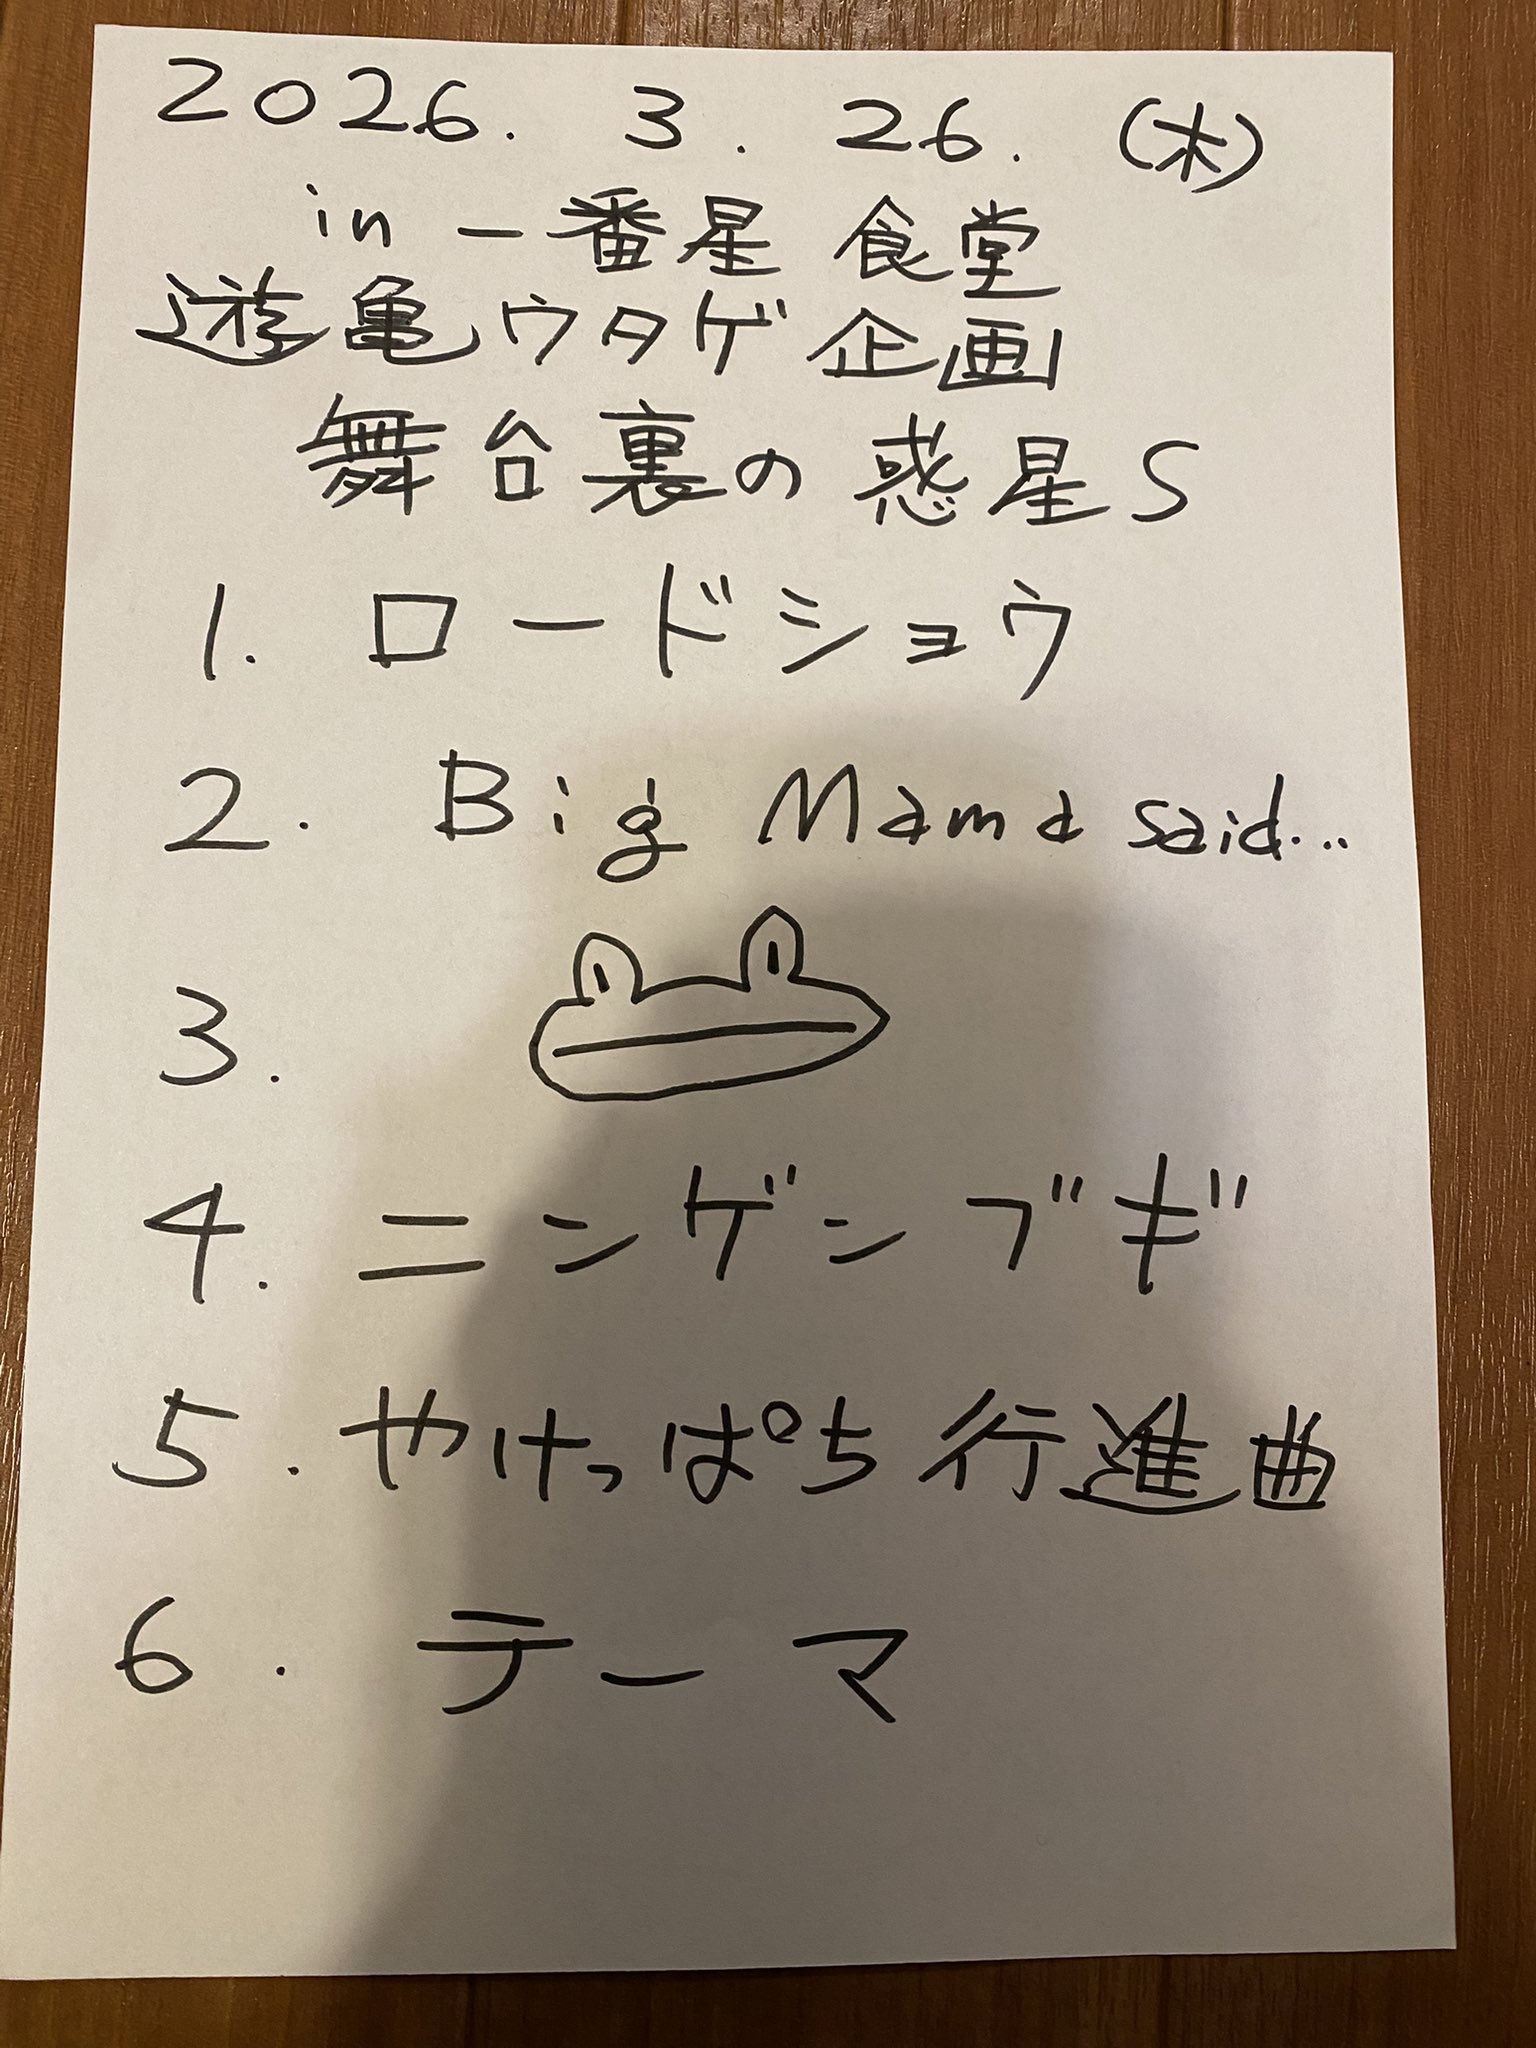 2026. 3. 26. (木)
in 一番星 食堂
遊亀ウタゲ企画
舞台裏の惑星S
1. ロードショウ
2. Big Mama said...
3.
4. ニンゲンブギ
5. やけっぱち行進曲
6. テーマ